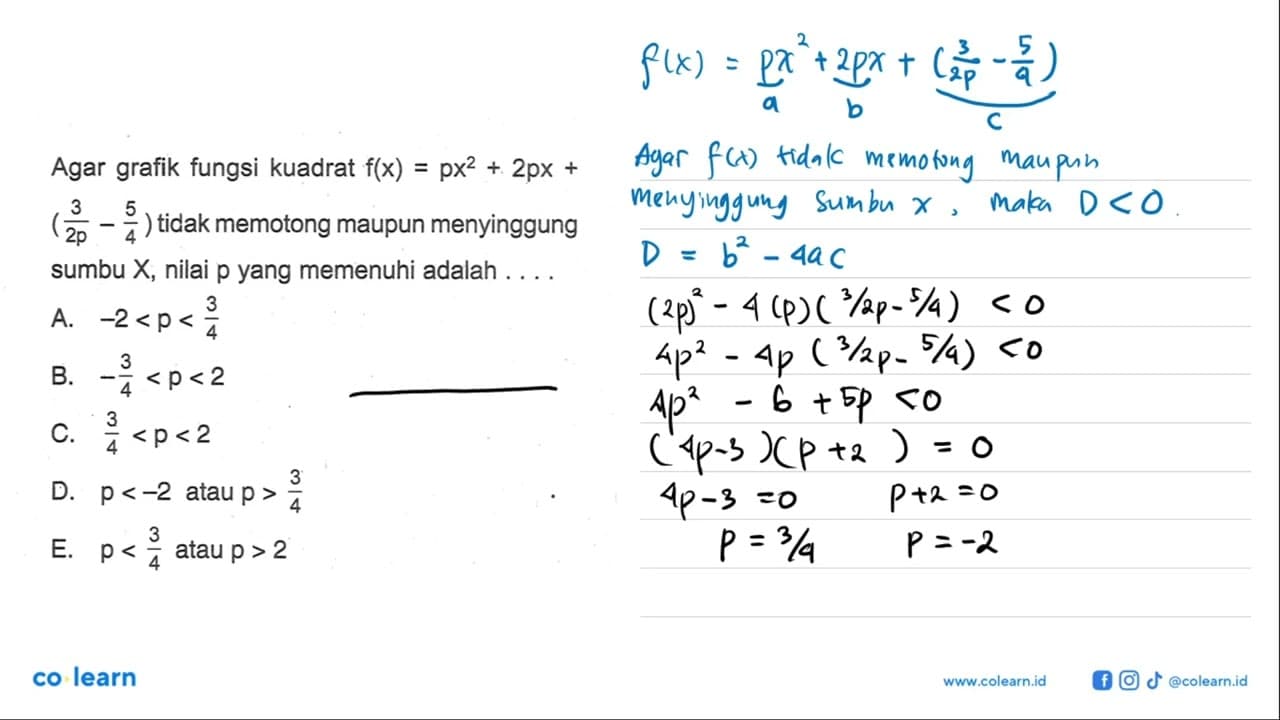 Agar grafik fungsi kuadrat f(x) = px² + 2px +
(3/2p − 5/4) tidak memotong maupun menyinggung
sumbu X, nilai p yang memenuhi adalah . . . .
A. −2 < p < 3/4
B. −3/4 < p < 2
C. 3/4 < p < 2
D. p < −2 atau p > 3/4
E. p < 3/4 atau p > 2
f(x) = px² + 2px + (3/2p − 5/4)
a b c
Agar f(x) tidak memotong maupun
menyinggung sumbu x, maka D < 0.
D = b² − 4ac
(2p)² − 4(p)(3/2p − 5/4) < 0
4p² − 4p (3/2p − 5/4) < 0
4p² − 6 + 5p < 0
(4p−3)(p+2) = 0
4p−3 = 0 p+2 = 0
p = 3/4 p = −2
co·learn
www.colearn.id
@colearn.id